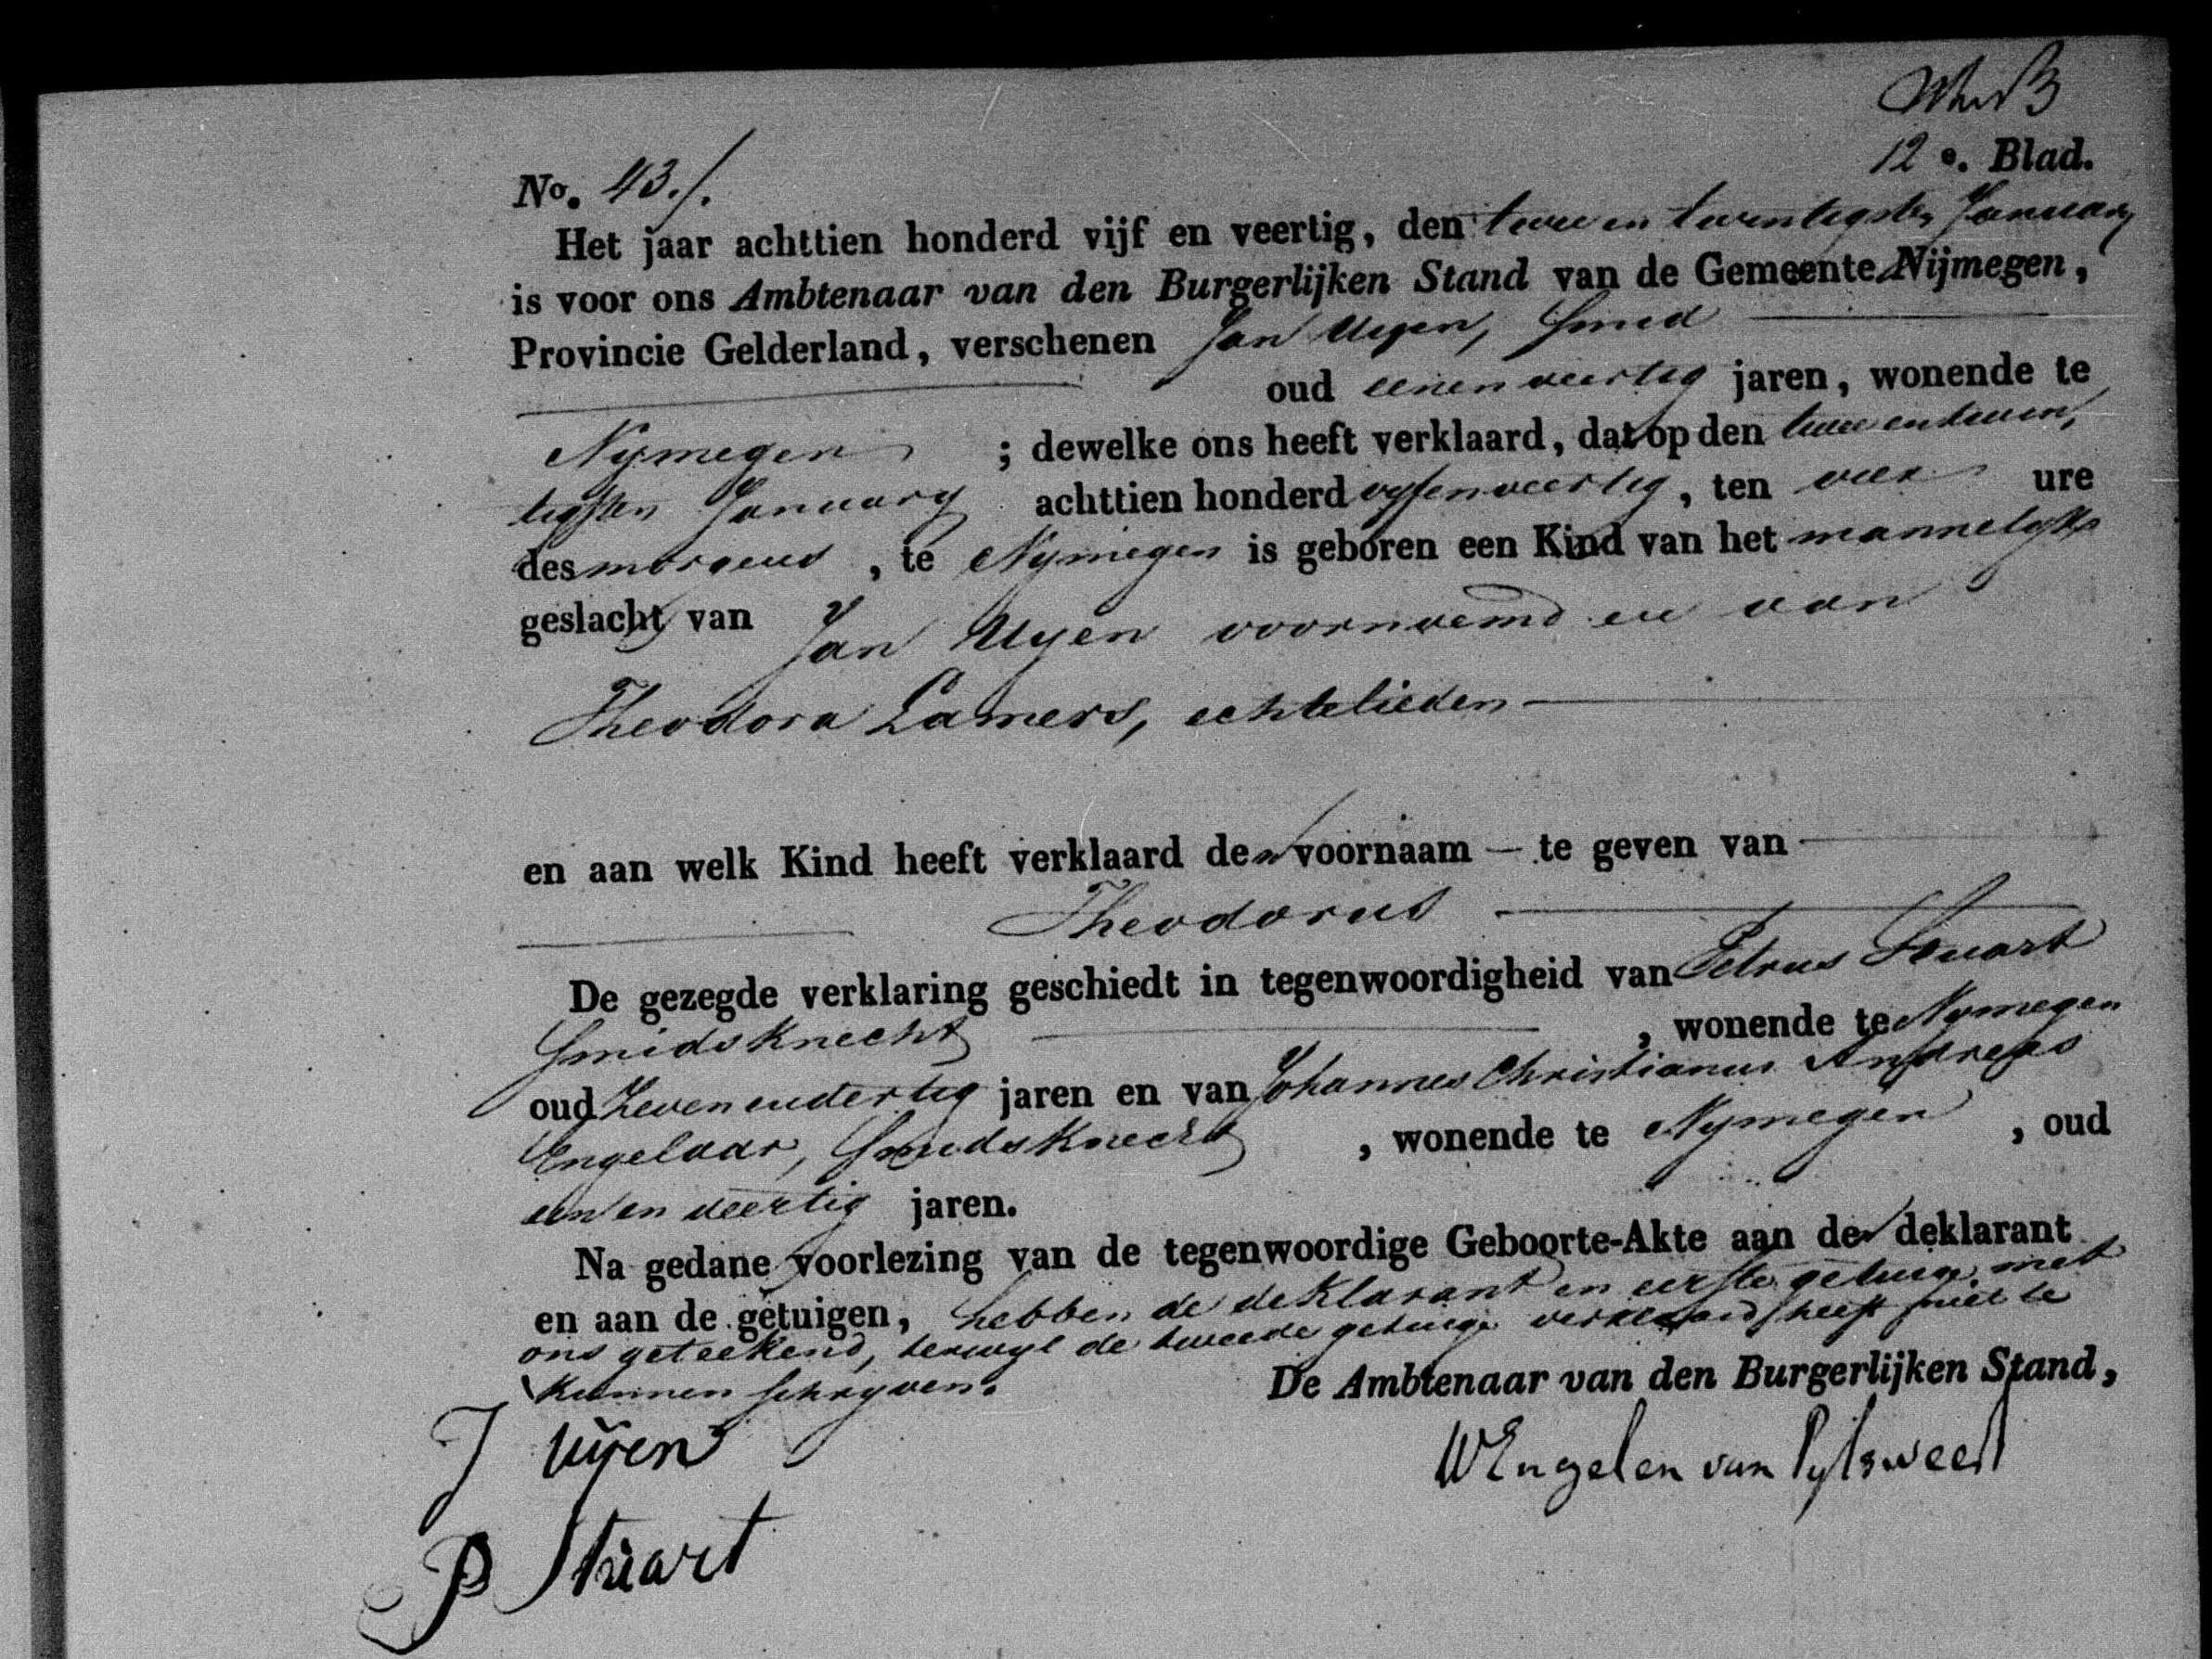 12 e. Blad.
No. 43./.
Het jaar achttien honderd vijf en veertig, den twee en twentigsten January
is voor ons Ambtenaar van den Burgerlijken Stand van de Gemeente Nijmegen,
Provincie Gelderland, verschenen Jan Uyen, Smid
oud eenenveertig jaren, wonende te
Nymegen ; dewelke ons heeft verklaard, dat op den twee en twin,
tigsten January achttien honderd vyfenveertig, ten vier ure
des morgens, te Nymegen is geboren een Kind van het mannelyk
geslacht van Jan Uyen voornoemd en van
Theodora Lamers, echtelieden
en aan welk Kind heeft verklaard den voornaam te geven van
Theodorus
De gezegde verklaring geschiedt in tegenwoordigheid van Petrus Stuart
Smidsknecht, wonende te Nymegen
oud Zevenendertig jaren en van Johannes Christianus Andreas
Engelaar, Smidsknecht, wonende te Nymegen, oud
een en veertig jaren.
Na gedane voorlezing van de tegenwoordige Geboorte-Akte aan den deklarant
en aan de getuigen, hebben de deklarant en eerste getuige met
ons geteekend, terwyl de tweede getuige verklaard heeft niet te
kunnen schryven.
De Ambtenaar van den Burgerlijken Stand,
J Uÿen
WEngelen van Pylsweert
P Stuart